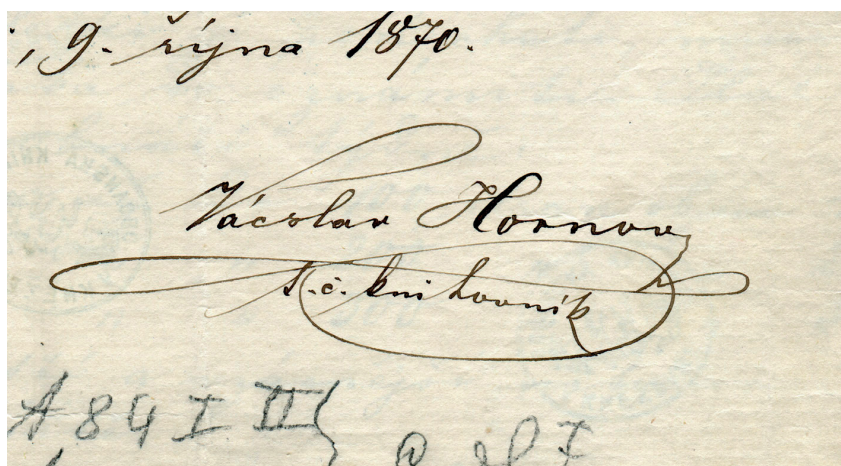 , 9. října 1870.
Václav Hornov
t. č. knihovník
A 84 I III